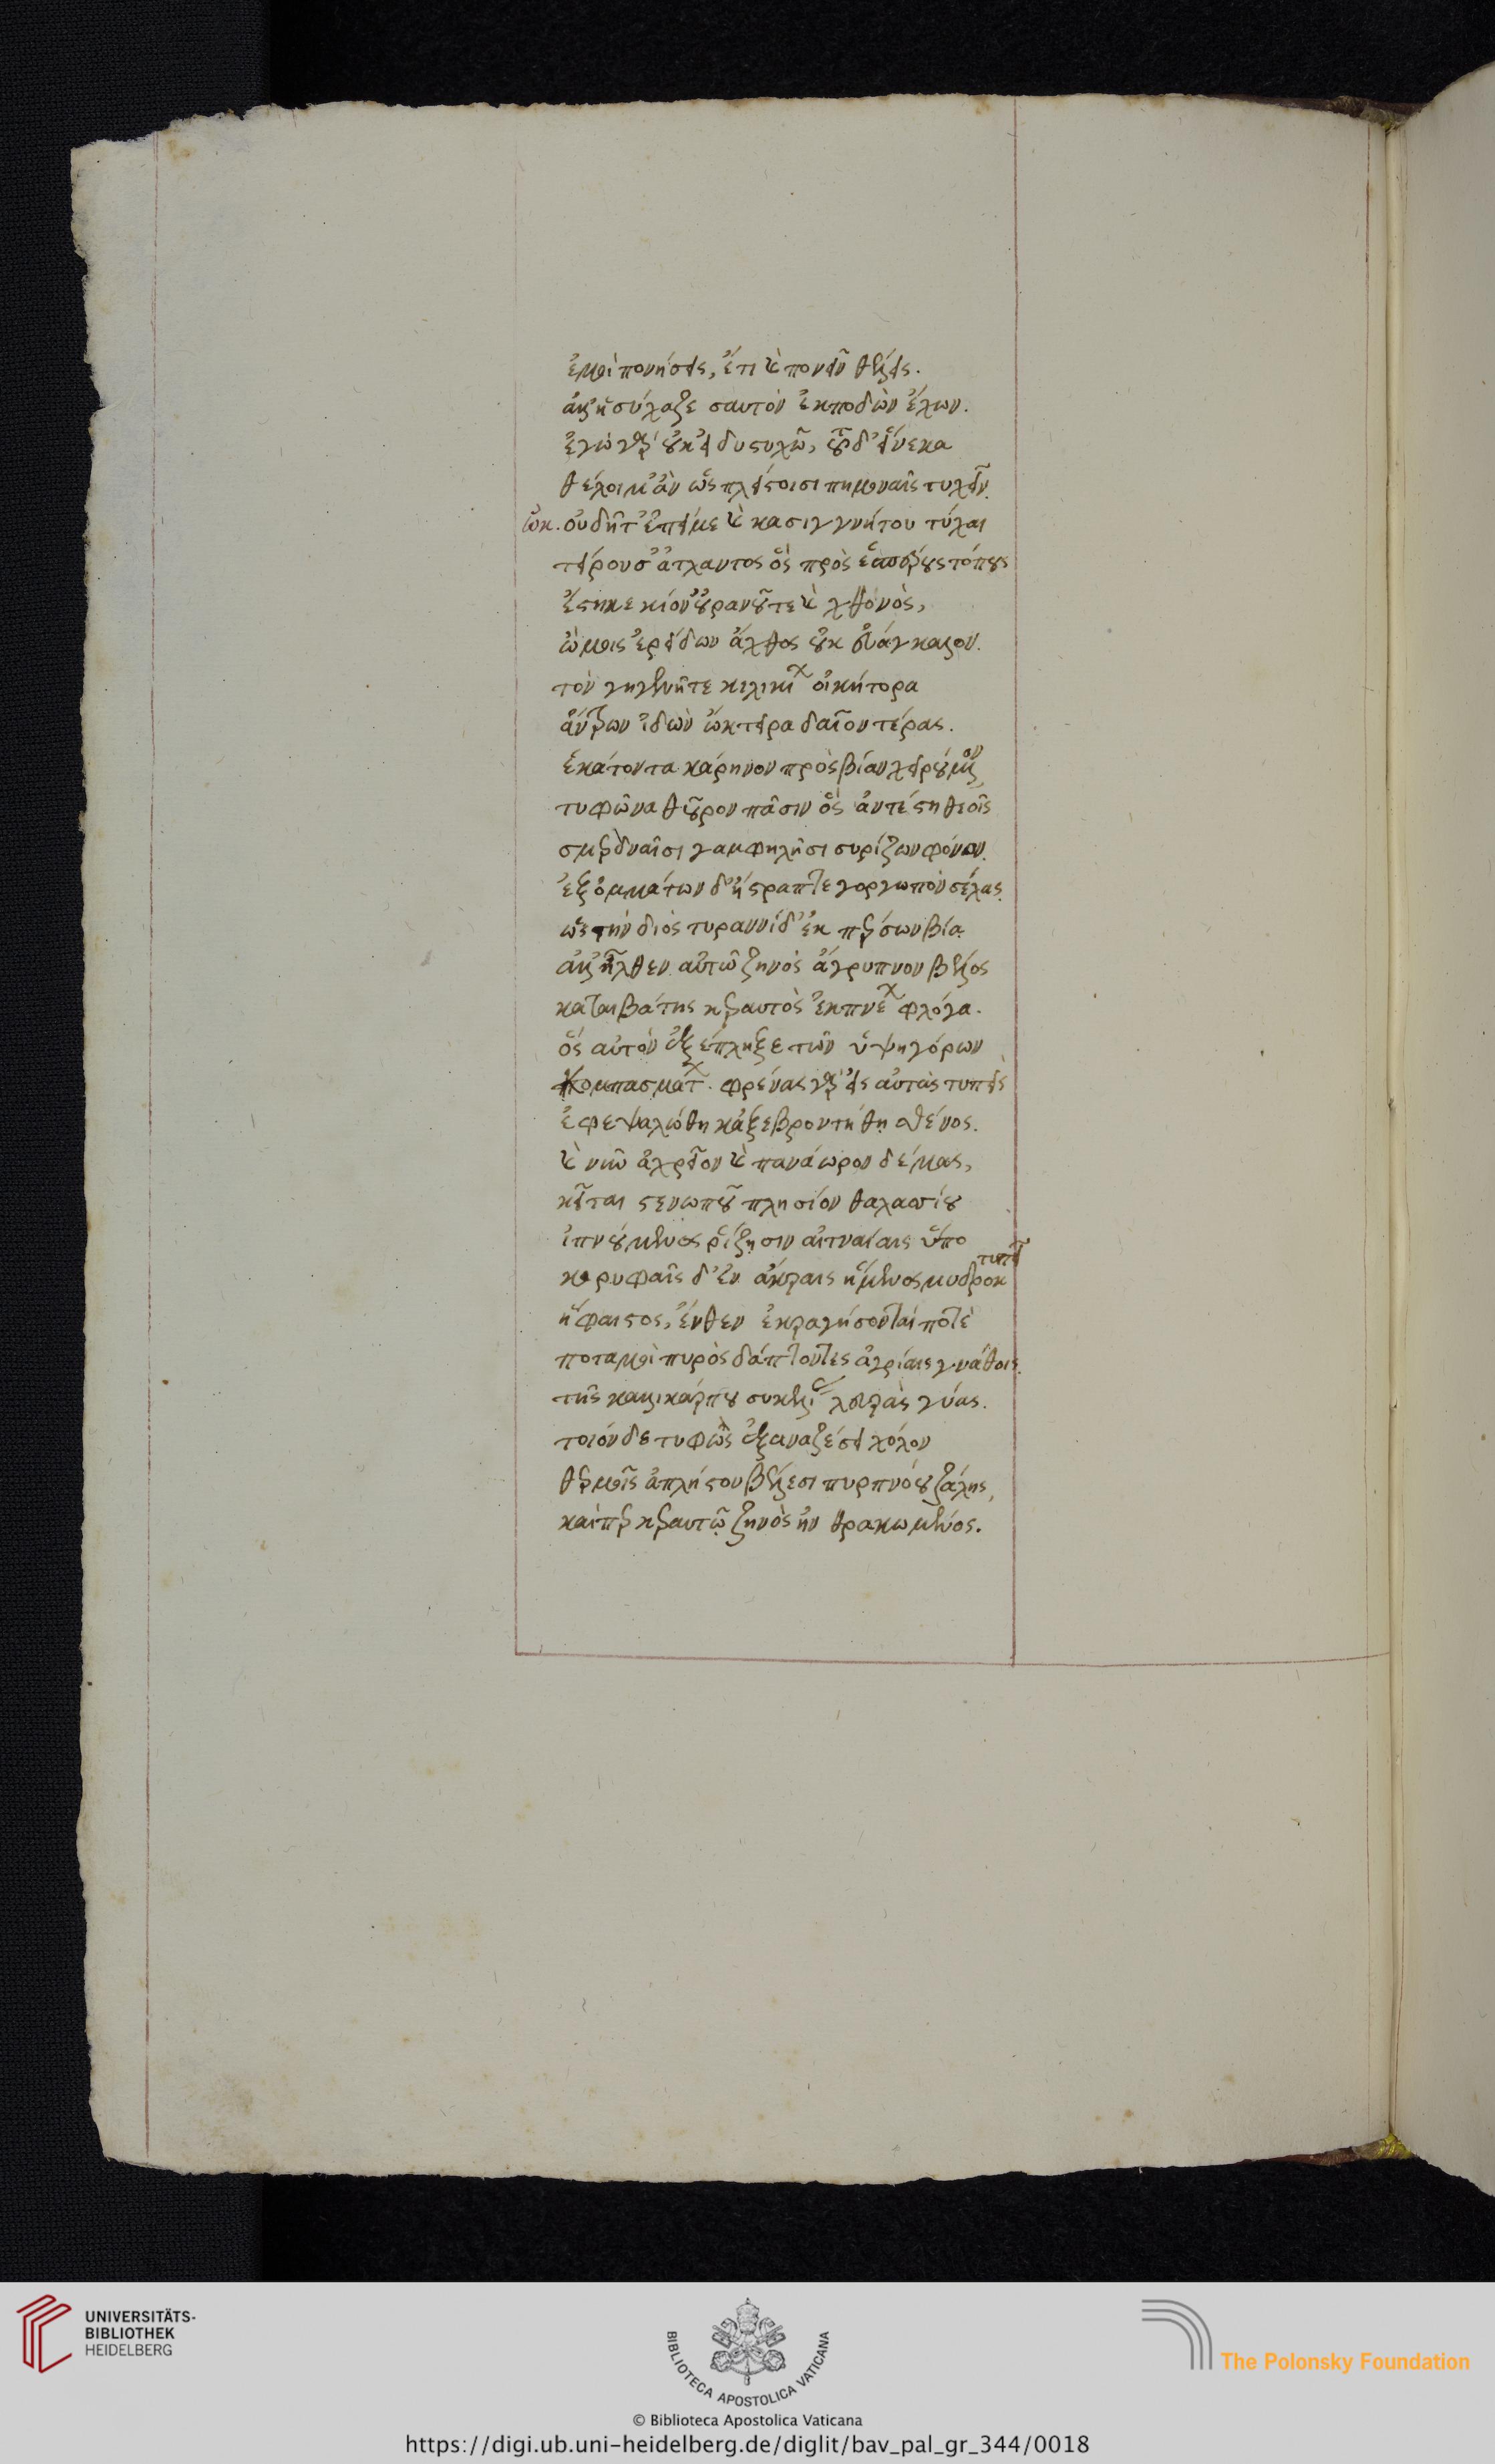 ἐμοὶ πονήσεις, ἔτι καὶ πονεῖν θέλεις.
ἀλλ' ἡσύχαζε σαυτὸν ἐκποδὼν ἔχων.
ἐγὼ γὰρ οὐκ εἰ δυστυχῶ, τοῦδ' εἵνεκα
θέλοιμ' ἂν ὡς πλείστοισι πημοναῖς τυχεῖν.
ὠκ. οὐ δῆτ' ἐπεί με καὶ κασιγνήτου τύχαι
τείρουσ' ἄτλαντος ὃς πρὸς ἑσπέρους τόπους
ἕστηκε κίον' οὐρανοῦ τε καὶ χθονὸς,
ὤμοις ἐρείδων ἄχθος οὐκ εὐάγκαλον.
τὸν γηγενῆ τε κιλικίων οἰκήτορα
ἄντρων ἰδὼν ᾤκτειρα δάϊον τέρας.
ἑκατοντακάρηνον πρὸς βίαν χειρούμενον
τυφῶνα θοῦρον πᾶσιν ὃς ἀντέστη θεοῖς
σμερδναῖσι γαμφηλῇσι συρίζων φόνον.
ἐξ ὀμμάτων δ' ἤστραπτε γοργωπὸν σέλας.
ὡς τὴν διὸς τυραννίδ' ἐκπέρσων βίᾳ.
ἀλλ' ἦλθεν αὐτῷ ζηνὸς ἄγρυπνον βέλος
καταιβάτης κεραυνὸς ἐκπνέων φλόγα.
ὃς αὐτὸν ἐξέπληξε τῶν ὑψηγόρων
κομπασμάτων. φρένας γὰρ εἰς αὐτὰς τυπεὶς
ἐφεψαλώθη κἀξεβροντήθη σθένος.
καὶ νῦν ἀχρεῖον καὶ πανάωρον δέμας,
κεῖται στενωποῦ πλησίον θαλασσίου
ἰπνούμενος ῥίζῃσιν αἰτναίαις ὕπο
κορυφαῖς δ' ἐν ἄκραις ἥμενος μυδροκτυπεῖ
ἥφαιστος, ἔνθεν ἐκραγήσονταί ποτε
ποταμοὶ πυρὸς δάπτοντες ἀγρίαις γνάθοις.
τῆς καλλικάρπου σικελίας λευρὰς γύας.
τοιόνδε τυφὼς ἐξαναζέσει χόλον
θερμοῖς ἀπλήστου βέλεσι πυρπνόου ζάλης,
καίπερ κεραυνῷ ζηνὸς ἠνθρακωμένος.
UNIVERSITÄTS-
BIBLIOTHEK
HEIDELBERG
BIBLIOTECA APOSTOLICA VATICANA
© Biblioteca Apostolica Vaticana
The Polonsky Foundation
https://digi.ub.uni-heidelberg.de/diglit/bav_pal_gr_344/0018